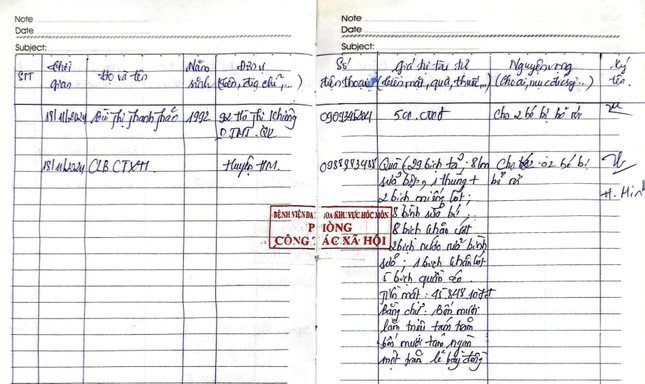 Note
Date
Subject:
STT
Thời gian
Họ và tên
Năm sinh
Đơn vị
(tên, địa chỉ,...)
18/11/2024
Bùi Thị Thanh
1992
CLB CTXH
Huyện HM.
Note
Date
Subject:
Số điện thoại
Giá trị tài trợ
(tiền mặt, quà, thuốc,...)
Nguyện vọng
(Cho ai, mục đích gì...)
Ký tên
500.000đ
Cho 2 bé bị bỏ rơi
Quà (29 bịch tã; 8 lon
sữa bột, 1 thùng +
2 bịch miếng lót;
8 bình sữa bé;
8 bịch khăn ướt
2 bịch nước rửa bình
sữa; 1 bịch khăn lót
5 bịch quần áo.
Tiền mặt:
bằng chữ: Bốn mươi
lăm triệu tám trăm
bốn mươi tám ngàn
một trăm lẻ bảy đồng
bé bị
bỏ rơi
BỆNH VIỆN ĐA KHOA KHU VỰC HÓC MÔN
PHÒNG
CÔNG TÁC XÃ HỘI